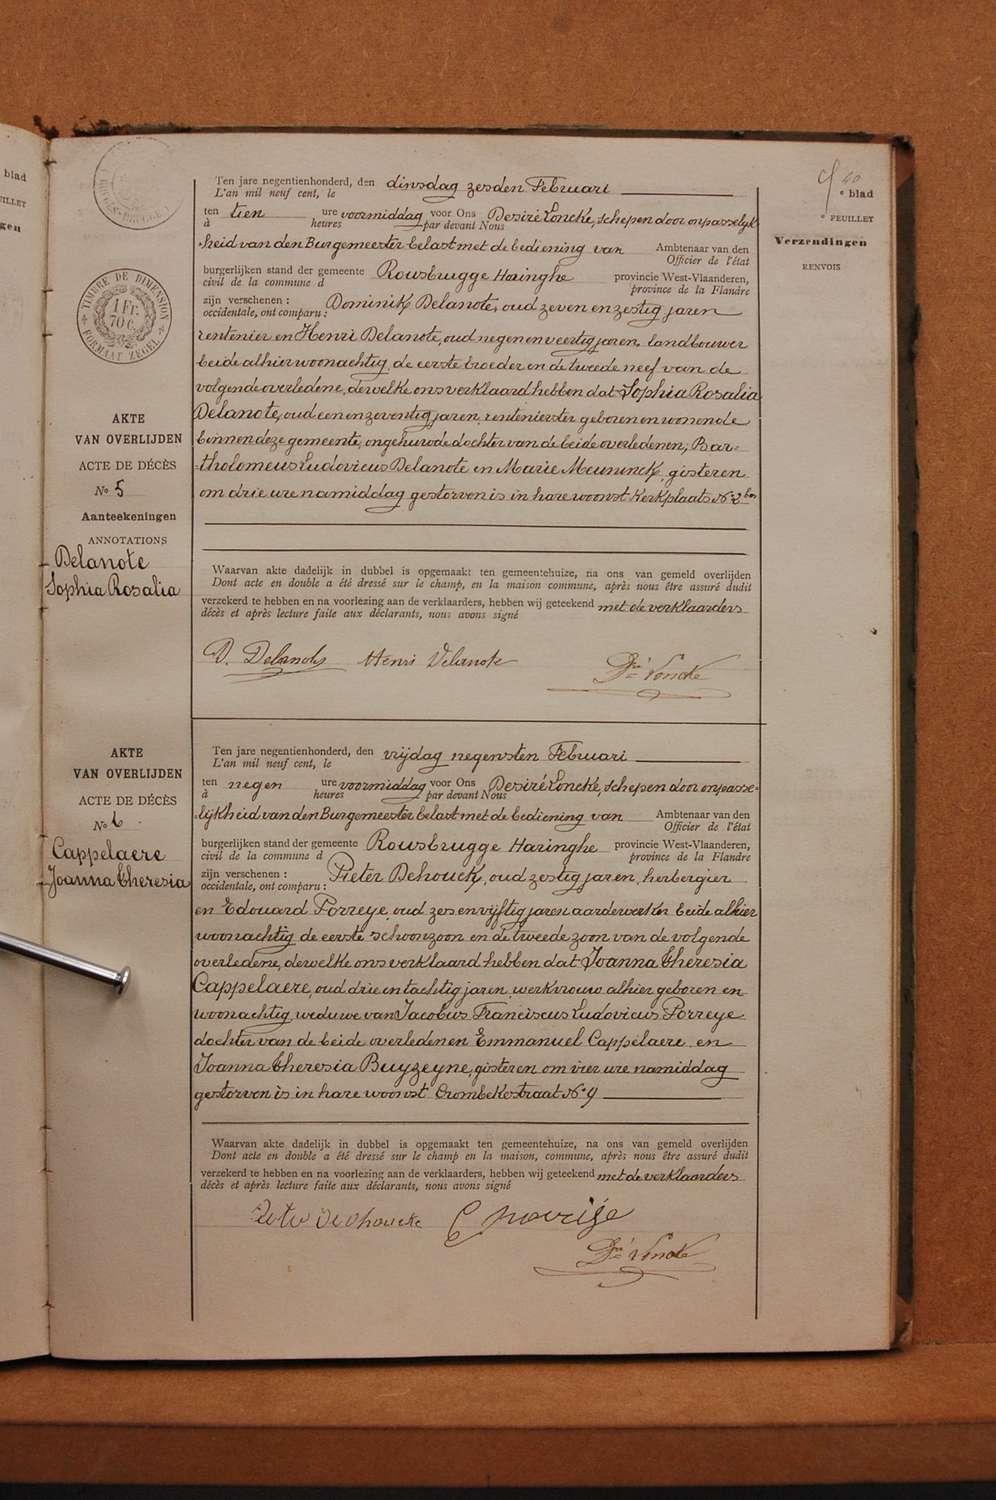 blad
FEUILLET
gen
40
° blad
° FEUILLET
Verzendingen
RENVOIS
TIMBRE DE DIMENSION
1 Fr. 70 c.
FORMAAT ZEGEL
AKTE
VAN OVERLIJDEN
ACTE DE DÉCÈS
No 5
Aanteekeningen
ANNOTATIONS
Delanote
Sophia Rosalia
Ten jare negentienhonderd, den dinsdag zesden Februari
L'an mil neuf cent, le
ten tien ure voormiddag voor Ons Desiré Loncke, schepen door onpasselijk
à heures par devant Nous
heid van den Burgemeester belast met de bediening van Ambtenaar van den
Officier de l'état
burgerlijken stand der gemeente Rousbrugge Haringhe provincie West-Vlaanderen,
civil de la commune d province de la Flandre
zijn verschenen : Dominick Delanote, oud zeven en zestig jaren
occidentale, ont comparu :
rentenier en Henri Delanote, oud negen en veertig jaren, landbouwer
beide alhier woonachtig, de eerste broeder en de tweede neef van de
volgende overledene, dewelke ons verklaard hebben dat Sophia Rosalia
Delanote, oud een en zeventig jaren, rentenierster geboren en wonende
binnen deze gemeente, ongehuwde dochter van de beide overledenen, Bar-
tholomeus Ludovicus Delanote en Marie Meuninck, gisteren
om drie ure namiddag gestorven is in hare woonst Kerkplaats No 2 bis
Waarvan akte dadelijk in dubbel is opgemaakt ten gemeentehuize, na ons van gemeld overlijden
Dont acte en double a été dressé sur le champ, en la maison commune, après nous être assuré dudit
verzekerd te hebben en na voorlezing aan de verklaarders, hebben wij geteekend met de verklaarders
décès et après lecture faite aux déclarants, nous avons signé
D. Delanote Henri Delanote
Dré Loncke
AKTE
VAN OVERLIJDEN
ACTE DE DÉCÈS
No 6
Cappelaere
Joanna Theresia
Ten jare negentienhonderd, den vrijdag negensten Februari
L'an mil neuf cent, le
ten negen ure voormiddag voor Ons Desiré Loncke, schepen door onpasse-
à heures par devant Nous
lijkheid van den Burgemeester belast met de bediening van Ambtenaar van den
Officier de l'état
burgerlijken stand der gemeente Rousbrugge Haringhe provincie West-Vlaanderen,
civil de la commune d province de la Flandre
zijn verschenen : Pieter Dehouck, oud zestig jaren, herbergier
occidentale, ont comparu :
en Edouard Porreye, oud zes en vijftig jaren aardewerker beide alhier
woonachtig de eerste schoonzoon en de tweede zoon van de volgende
overledene, dewelke ons verklaard hebben dat Joanna Theresia
Cappelaere, oud drie en tachtig jaren, werkvrouw alhier geboren en
woonachtig, weduwe van Jacobus Franciscus Ludovicus Porreye
dochter van de beide overledenen Emmanuel Cappelaere en
Joanna Theresia Buyzeyne, gisteren om vier ure namiddag
gestorven is in hare woonst Crombekestraat No 9
Waarvan akte dadelijk in dubbel is opgemaakt ten gemeentehuize, na ons van gemeld overlijden
Dont acte en double a été dressé sur le champ en la maison, commune, après nous être assuré dudit
verzekerd te hebben en na voorlezing aan de verklaarders, hebben wij geteekend met de verklaarders
décès et après lecture faite aux déclarants, nous avons signé
Dehoucke
Dré Loncke